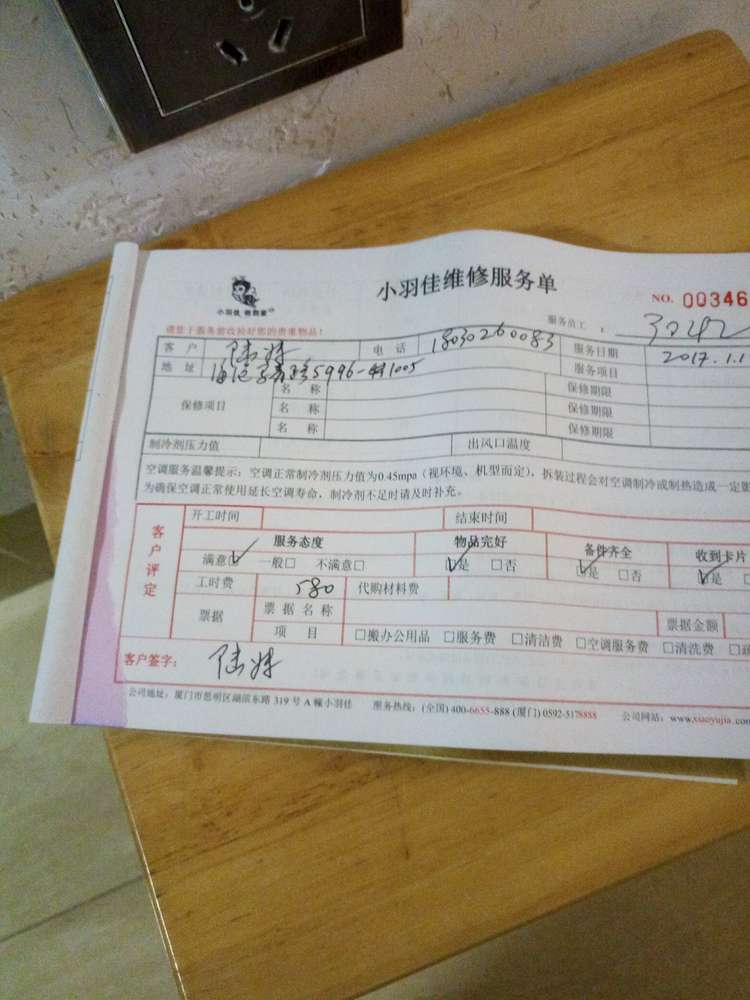 小羽佳维修服务单
小羽佳
NO. 00346
请您于服务前收捡好您的贵重物品！
服务员工：
客户 陆 电话 18030260083 服务日期 2017.1.1
地址 5996- 1005 服务项目
保修项目 名称 保修期限
名称 保修期限
名称 保修期限
制冷剂压力值 出风口温度
空调服务温馨提示：空调正常制冷剂压力值为0.45mpa（视环境、机型而定），拆装过程会对空调制冷或制热造成一定
为确保空调正常使用延长空调寿命，制冷剂不足时请及时补充。
客户评定
开工时间 结束时间
服务态度 物品完好 备件齐全 收到卡片
满意☑ 一般□ 不满意□ ☑是 □否 ☑是 □否 ☑是
工时费 580 代购材料费
票据 票据名称 票据金额
项目 □搬办公用品 □服务费 □清洁费 □空调服务费 □清洗费
客户签字： 陆
公司地址：厦门市思明区湖滨东路 319 号 A 幢小羽佳 服务热线：(全国) 400-6655-888 (厦门) 0592-5178888 公司网站：www.xiaoyujia.com